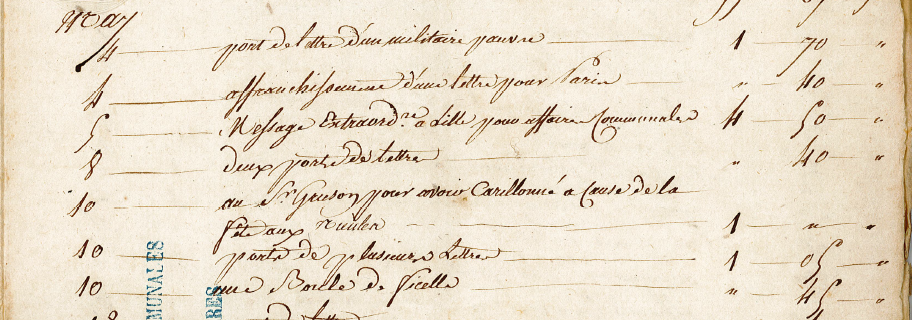 May
4 port de lettre d'un militaire pauvre 1 70 "
4 affranchissement d'une lettre pour Paris " 40 "
5 Message Extraord.re a Lille pour affaires Communales 4 50 "
8 deux ports de lettre " 40 "
10 au Sr. Gruson pour avoir Carillonné a Cause de la
fête aux 1 " "
10 ports de plusieurs Lettres 1 05 "
10 une Boule de ficelle " 45 "
MUNALES
RES